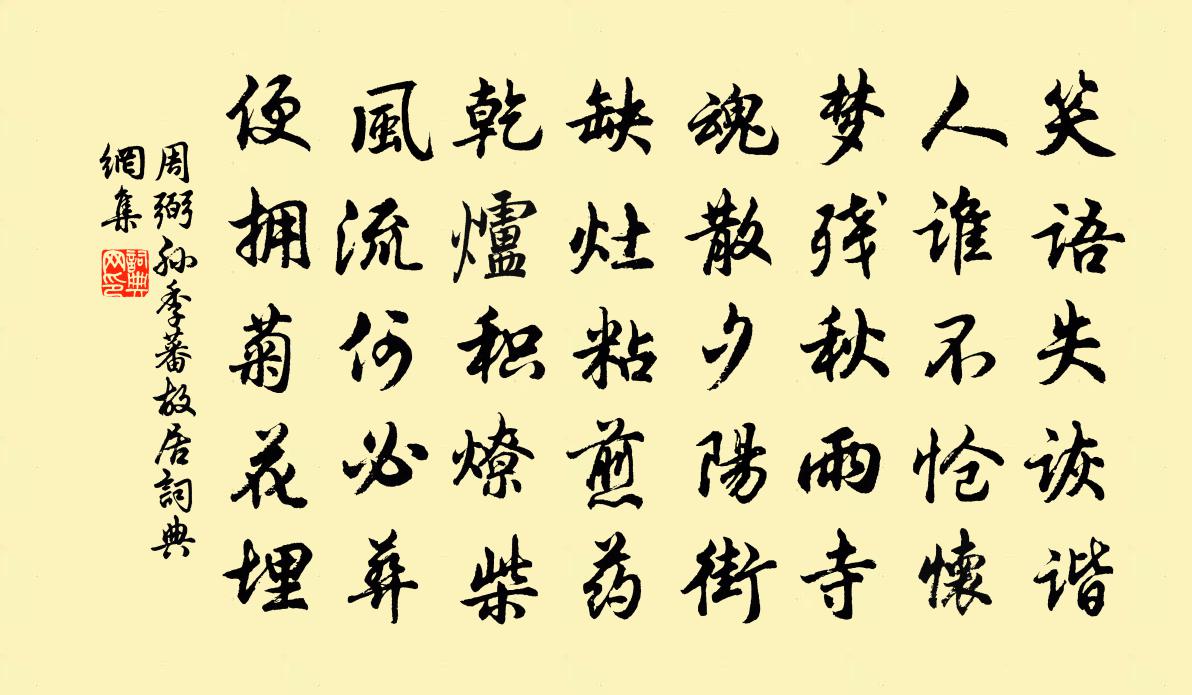 笑语失诙谐
人谁不怆懷
梦残秋雨寺
魂散夕陽街
缺灶粘煎药
乾爐积燎柴
風流何必葬
便拥菊花埋
周弼孙季蕃故居詞典
網集
詞典
网印